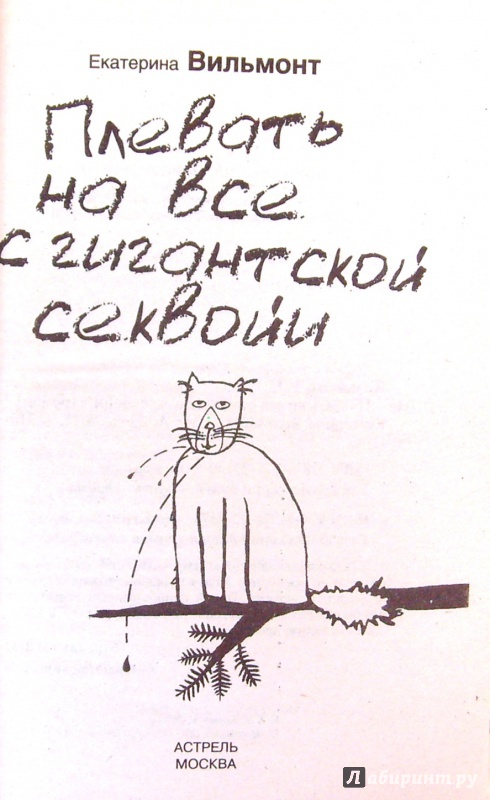 Екатерина Вильмонт
Плевать
на все
с гигантской
секвойи
АСТРЕЛЬ
МОСКВА
Лабиринт.ру